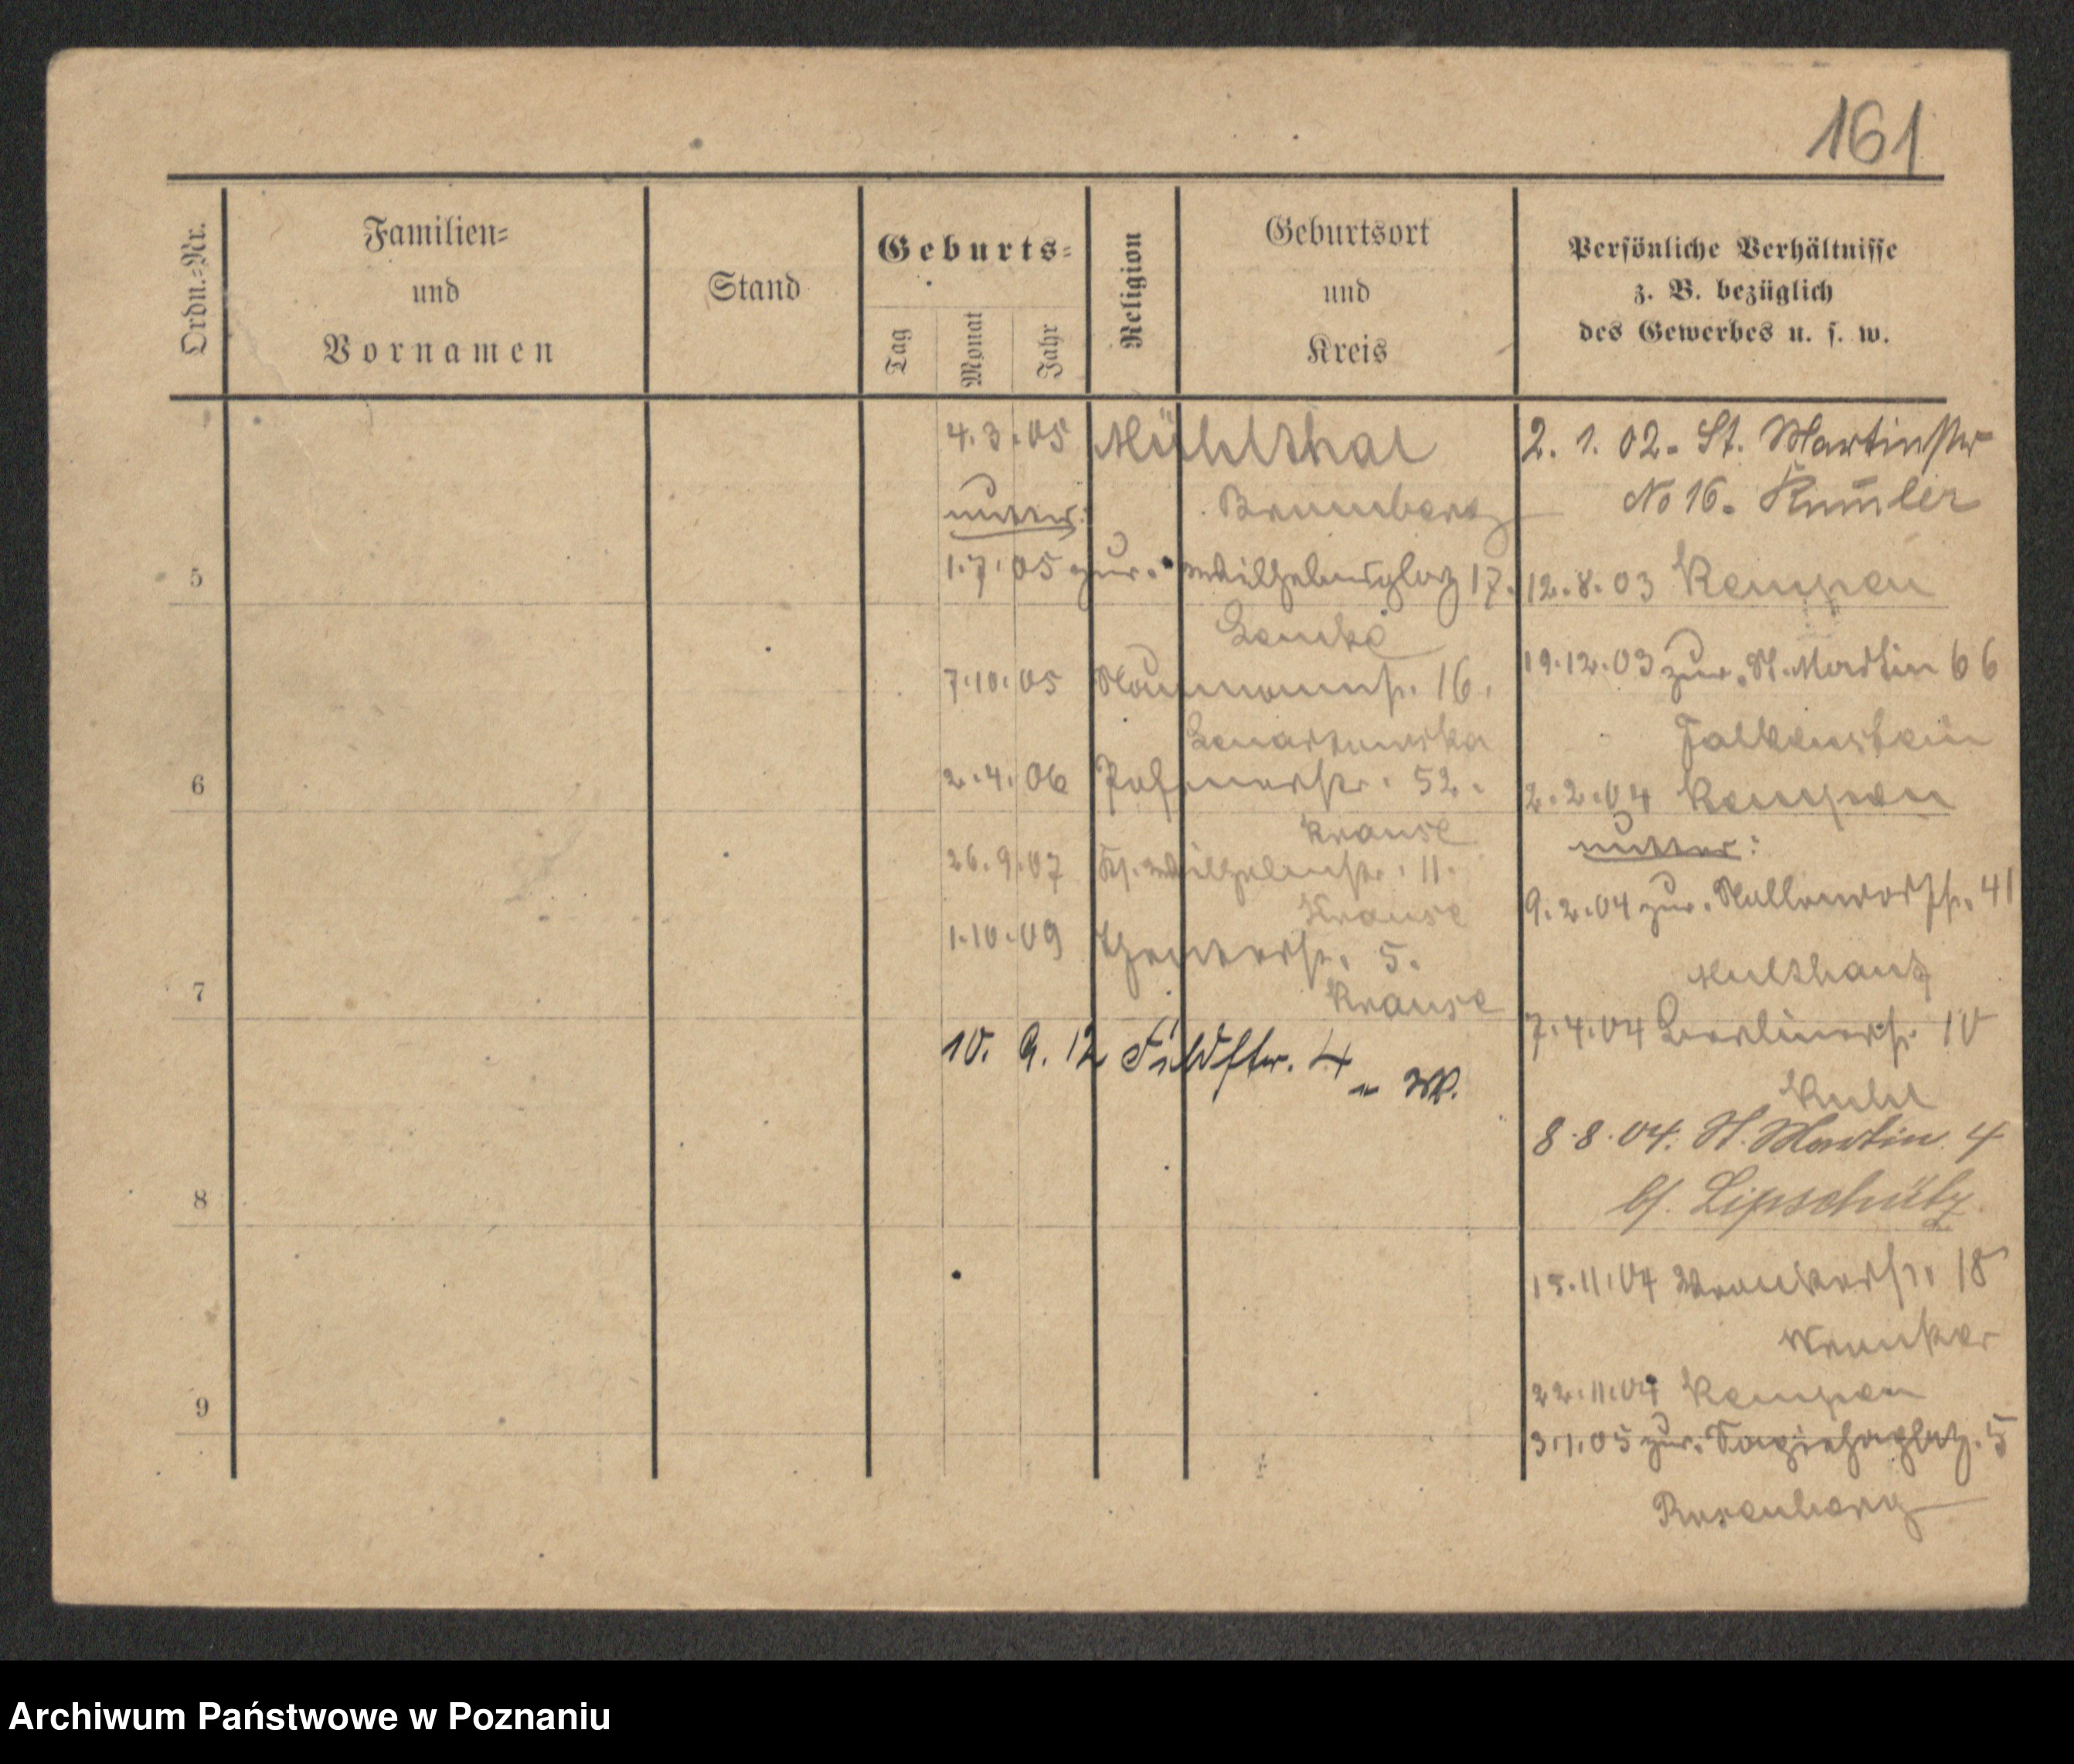 161
Ordn.-Nr.
Familien-
und
Vornamen
Stand
Geburts-
Tag
Monat
Jahr
Religion
Geburtsort
und
Kreis
Persönliche Verhältnisse
z. B. bezüglich
des Gewerbes u. s. w.
4.3.05 Mühlthal
Bromberg
1.7.05 zur. Wilhelmsplatz 17.
7.10.05 Naumannstr. 16.
2.4.06 Posenerstr. 52.
Krause
26.9.07 Kl. Wilhelmstr. 11.
Krause
1.10.09 5.
Krause
10. 9. 12 Feldstr. 4
2. 1. 02. St. Martinstr
No 16. Kum̄ler
12.8.03 Kempen
19.12.03 zur. St. Martin 66
Falkenstein
2.2.04 Kempen
9.2.04 zur. 41
7.4.04 Berlinerstr. 10
8.8.04. St. Martin 4
b/. Lipschütz
15.11.04 Wronkerstr. 18
Wronker
22.11.04 Kempen
3.1.05 zur. Sapiehaplatz. 5
Rosenberg
5
6
7
8
9
Archiwum Państwowe w Poznaniu